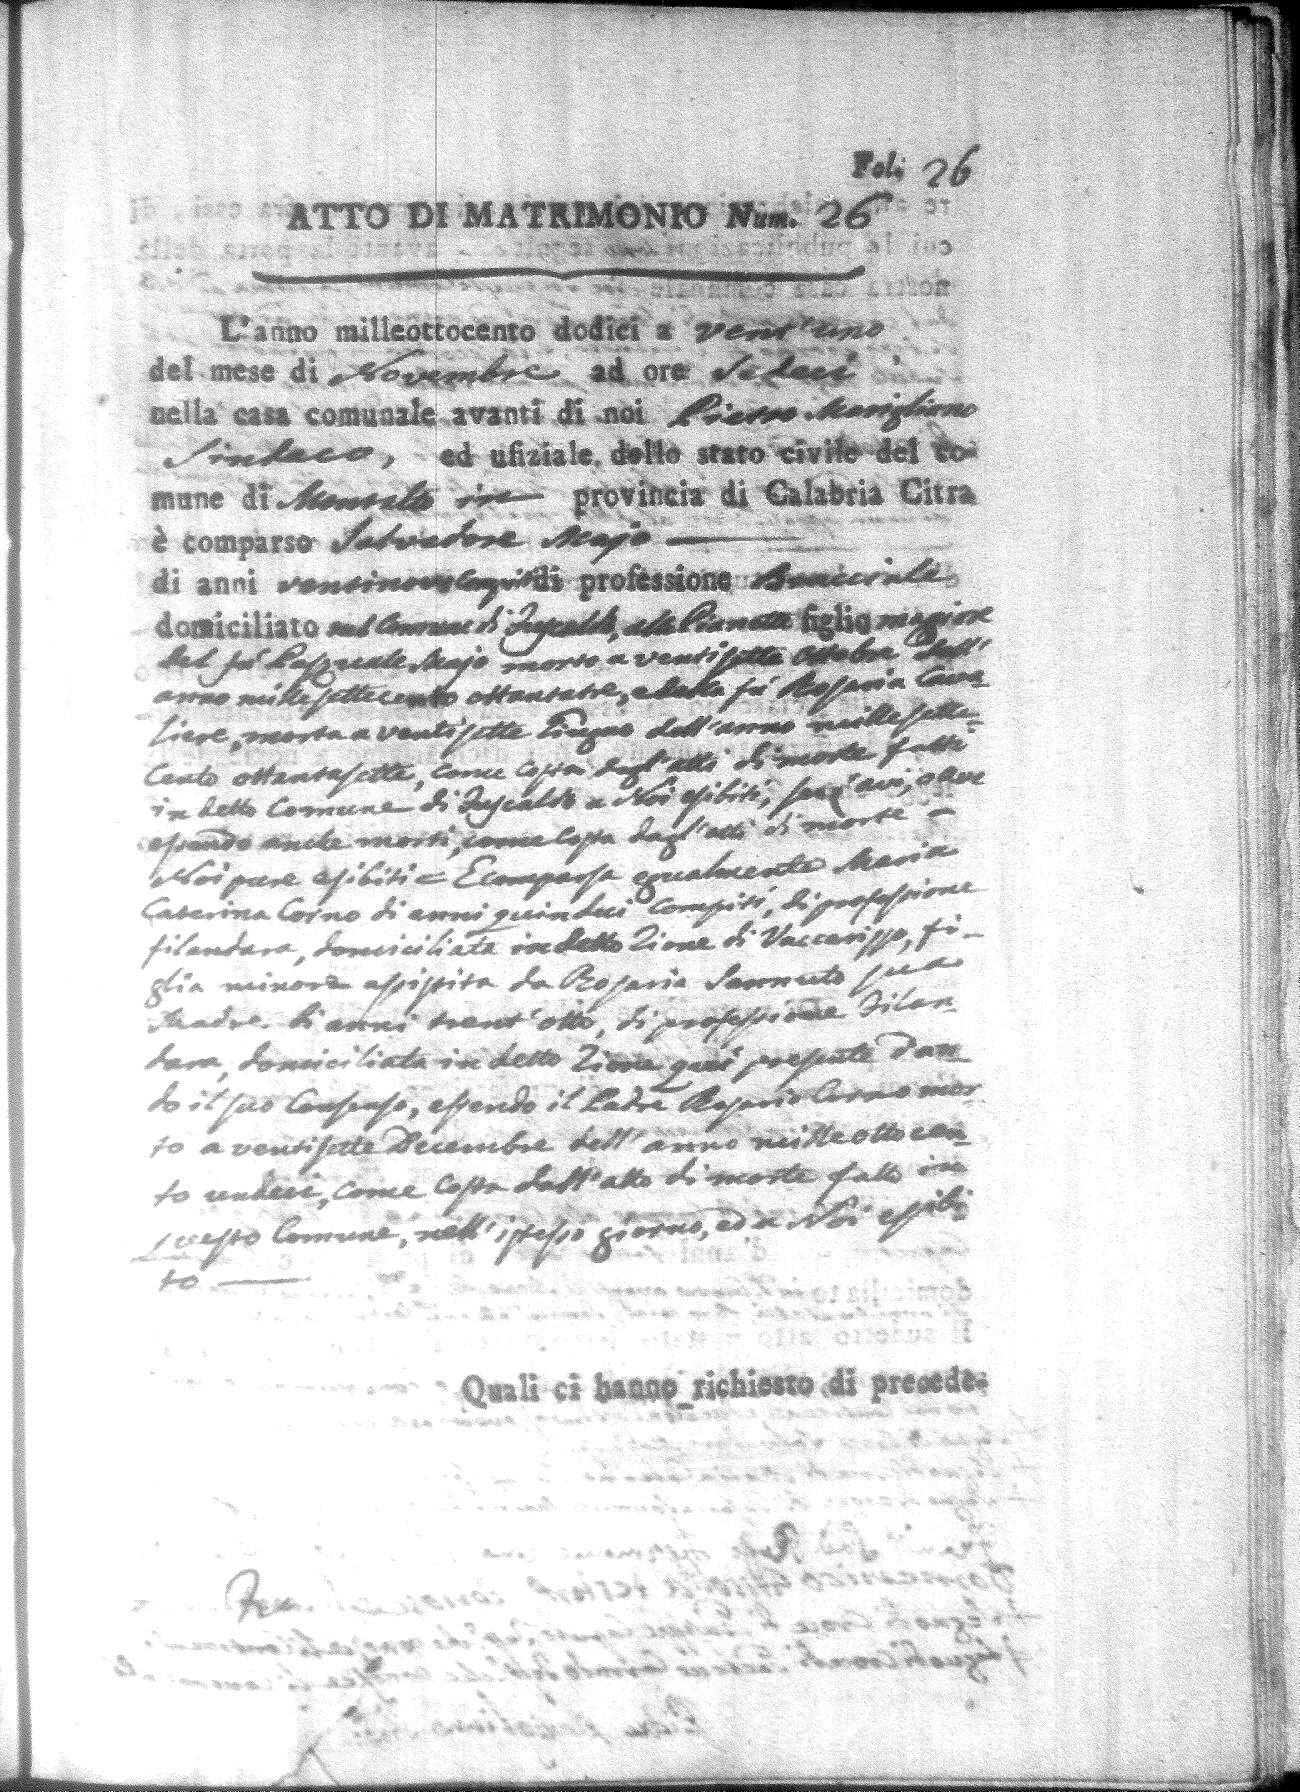 Fol. 26
ATTO DI MATRIMONIO Num. 26
L'anno milleottocento dodici a vent'uno
del mese di Novembre ad ore Sedeci
nella casa comunale avanti di noi Pietro Marigliano
Sindaco, ed ufiziale dello stato civile del co-
mune di Montalto in provincia di Calabria Citra
è comparso Salvadore Majo
di anni ventinove compiti di professione Bracciale
domiciliato nel Comune di Fuscaldo, alla Pianetta figlio maggiore
del fù Pasquale Majo morto a ventisette Ottobre dell'
anno mille settecento ottantatre, e della fù Rosaria Cava-
liere, morta a ventisette Giugno dell'anno mille sette-
cento ottantasette, come costa dagl'atti di morte fatti
in detto Comune di Fuscaldo a Noi esibiti, senz'avi, o ave
essendo anche morti, come costa dagl'atti di morte a
Noi pure esibiti = E comparsa egualmente Maria
Caterina Corno di anni quindeci compiti, di professione
filandara, domiciliata in detto Rione di Vaccarizzo, fi-
glia minore assistita da Rosaria Iannuto sua
Madre di anni trent'otto, di professione Filan-
dara, domiciliata in detto Rione quì presente dan-
do il suo Consenso, essendo il Padre Rosario Corno mor-
to a ventisette Decembre dell'anno mille ottocen-
to undeci, come costa dall'atto di morte fatto in
questo Comune, nell'istesso giorno, ed a Noi esibi-
to
Quali ci hanno richiesto di precede-